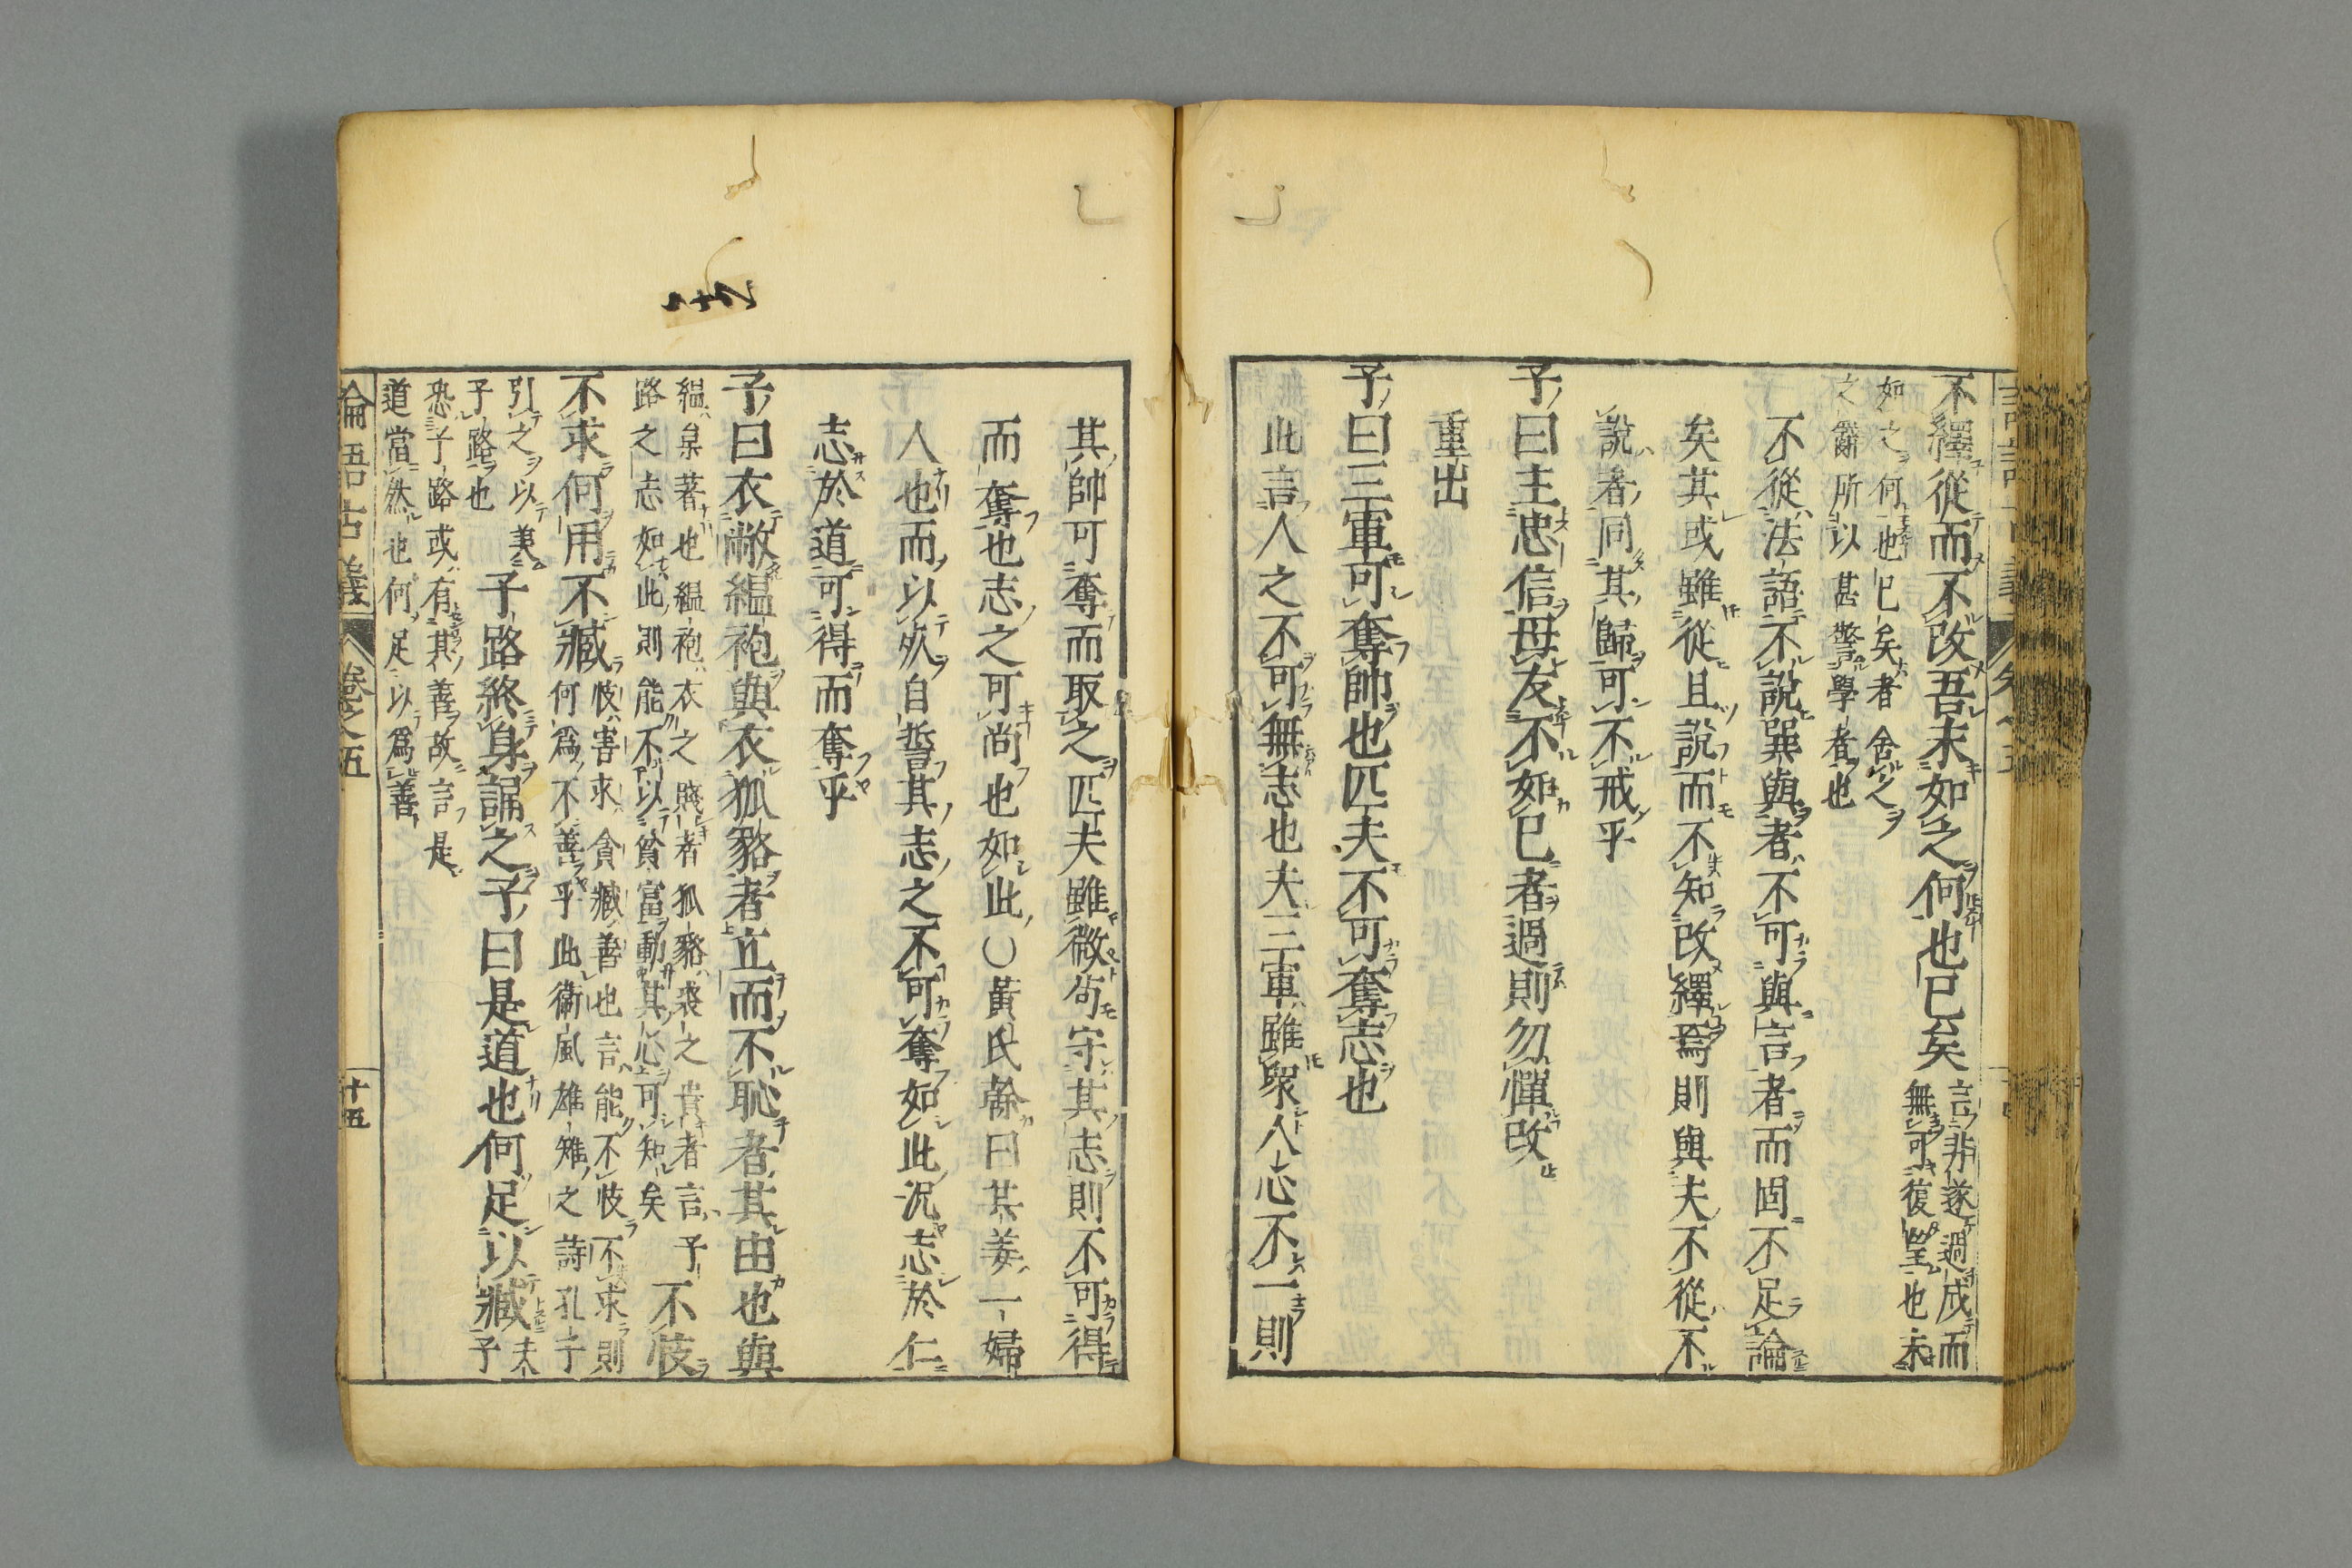 不繹從而不改吾末如之何也已矣
言非遂過成而
無可復望也末
如之何也已矣者舍之
之辭所以甚警學者也
不從法語不說巽與者不可與言者而固不足論
矣其或雖從且說而不知改繹焉則與夫不從不
說者同其歸可不戒乎
子曰主忠信毋友不如已者過則勿憚改
重出
子曰三軍可奪帥也匹夫不可奪志也
此言人之不可無志也夫三軍雖衆人心不一則
其帥可奪而取之匹夫雖微苟守其志則不可得
而奪也志之可尚也如此○黃氏榦曰共姜一婦
人也而以死自誓其志之不可奪如此況志於仁
志於道可得而奪乎
子曰衣敝縕袍與衣狐貉者立而不恥者其由也與
縕枲著也縕袍衣之賤者狐貉裘之貴者言子
路之志如此則能不以貧富動其心可知矣
不忮
不求何用不臧
忮害求貪臧善也言能不忮不求則
何爲不善乎此衛風雄雉之詩孔子
引之以美
子路也
子路終身誦之子曰是道也何足以臧
夫子
恐子路或有其善故言是
道當然也何足以爲善
論語古義
卷之五
十五